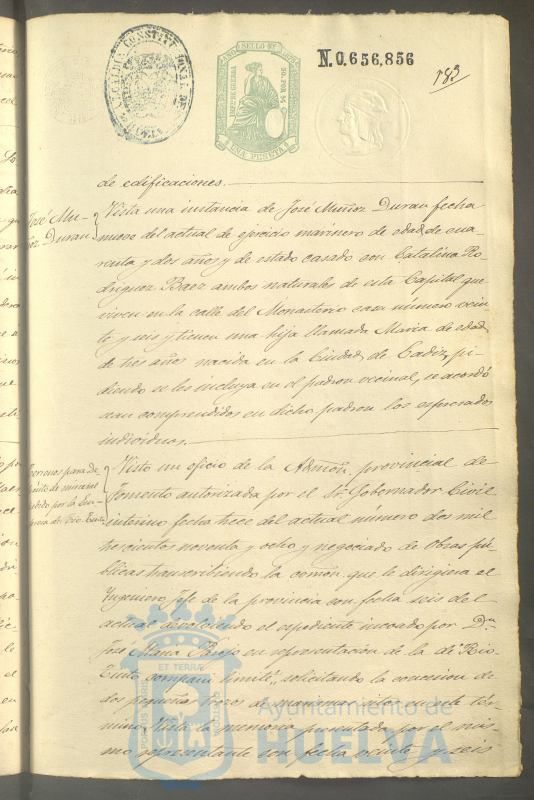 ALCALDIA CONSTITUCIONAL DE HUELVA
SELLO
IMPTO DE GUERRA
UNA PESETA
N.0,656,856
183
de edificaciones.
José Mu-
ñoz Duran
Vista una instancia de José Muñoz Duran fecha
nueve del actual de ejercicio marinero de edad de cua-
renta y dos años y de estado casado con Catalina Ro-
driguez Baez ambos naturales de esta Capital que
viven en la calle del Monasterio casa número vein-
te y seis y tienen una hija llamada Maria de edad
de tres años nacida en la Ciudad de Cadiz, pi-
diendo se les incluya en el padron vecinal, se acordó
sean comprendidos en dicho padron los espresados
individuos.
Terrenos para de-
pósito de minerales
pedido por la Em-
presa de Rio-Tinto
Visto un oficio de la Admon. provincial de
Fomento autorizada por el Sr. Gobernador Civil
interino fecha trece del actual número dos mil
trescientos noventa y ocho y negociado de Obras pú-
blicas transcribiendo la comon. que le dirigiera el
Ingeniero jefe de la provincia con fecha seis del
actual devolviendo el expediente incoado por Dn
José Maria Parejo en representacion de la de Rio-
Tinto compani limité, solicitando la concesion de
dos pequeños trozos de marisma sitos en este tér-
mino. Vista la memoria presentada por el mis-
mo representante con fecha veinte y seis
ET TERRÆ
PORTUS MARIS
CUSTODIA
Ayuntamiento de
HUELVA